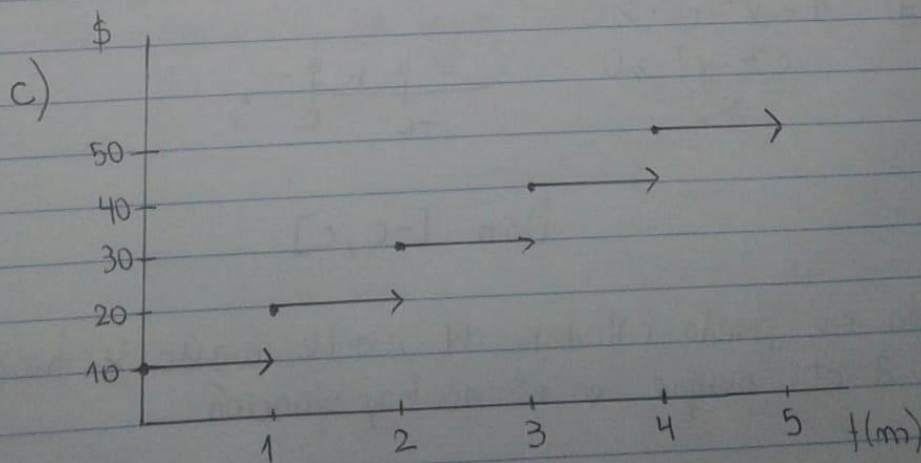 $
c)
50
40
30
20
10
1 2 3 4 5 t(m)